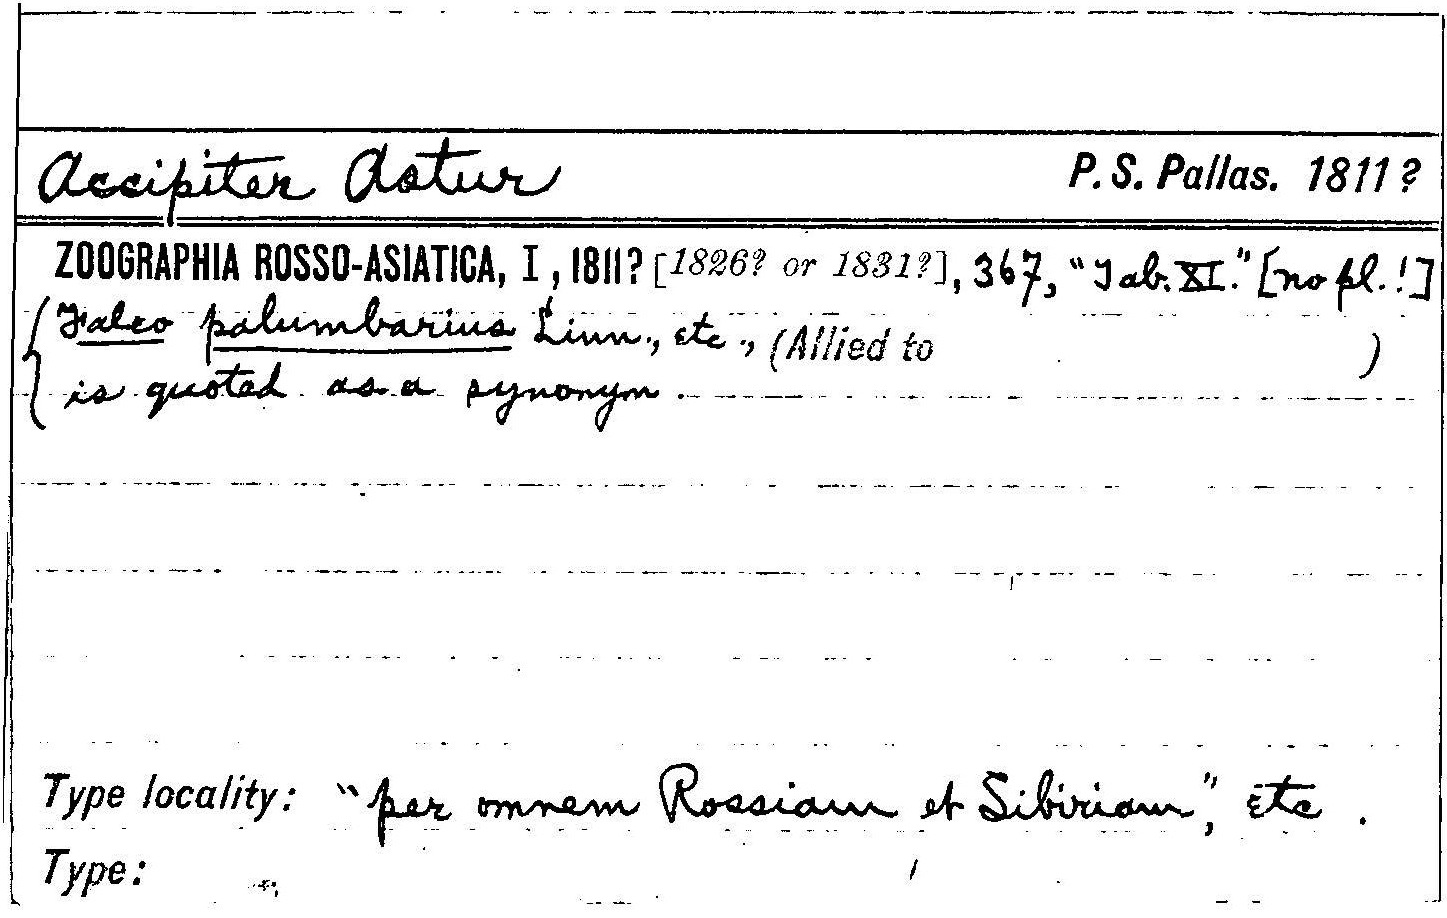 Accipiter Astur P. S. Pallas. 1811?
ZOOGRAPHIA ROSSO-ASIATICA, I, 1811? [1826? or 1831?], 367, "Tab. XI." [no pl.!]
Falco palumbarius Linn., etc., (Allied to )
is quoted as a synonym.
Type locality: "per omnem Rossiam et Sibiriam", etc.
Type: